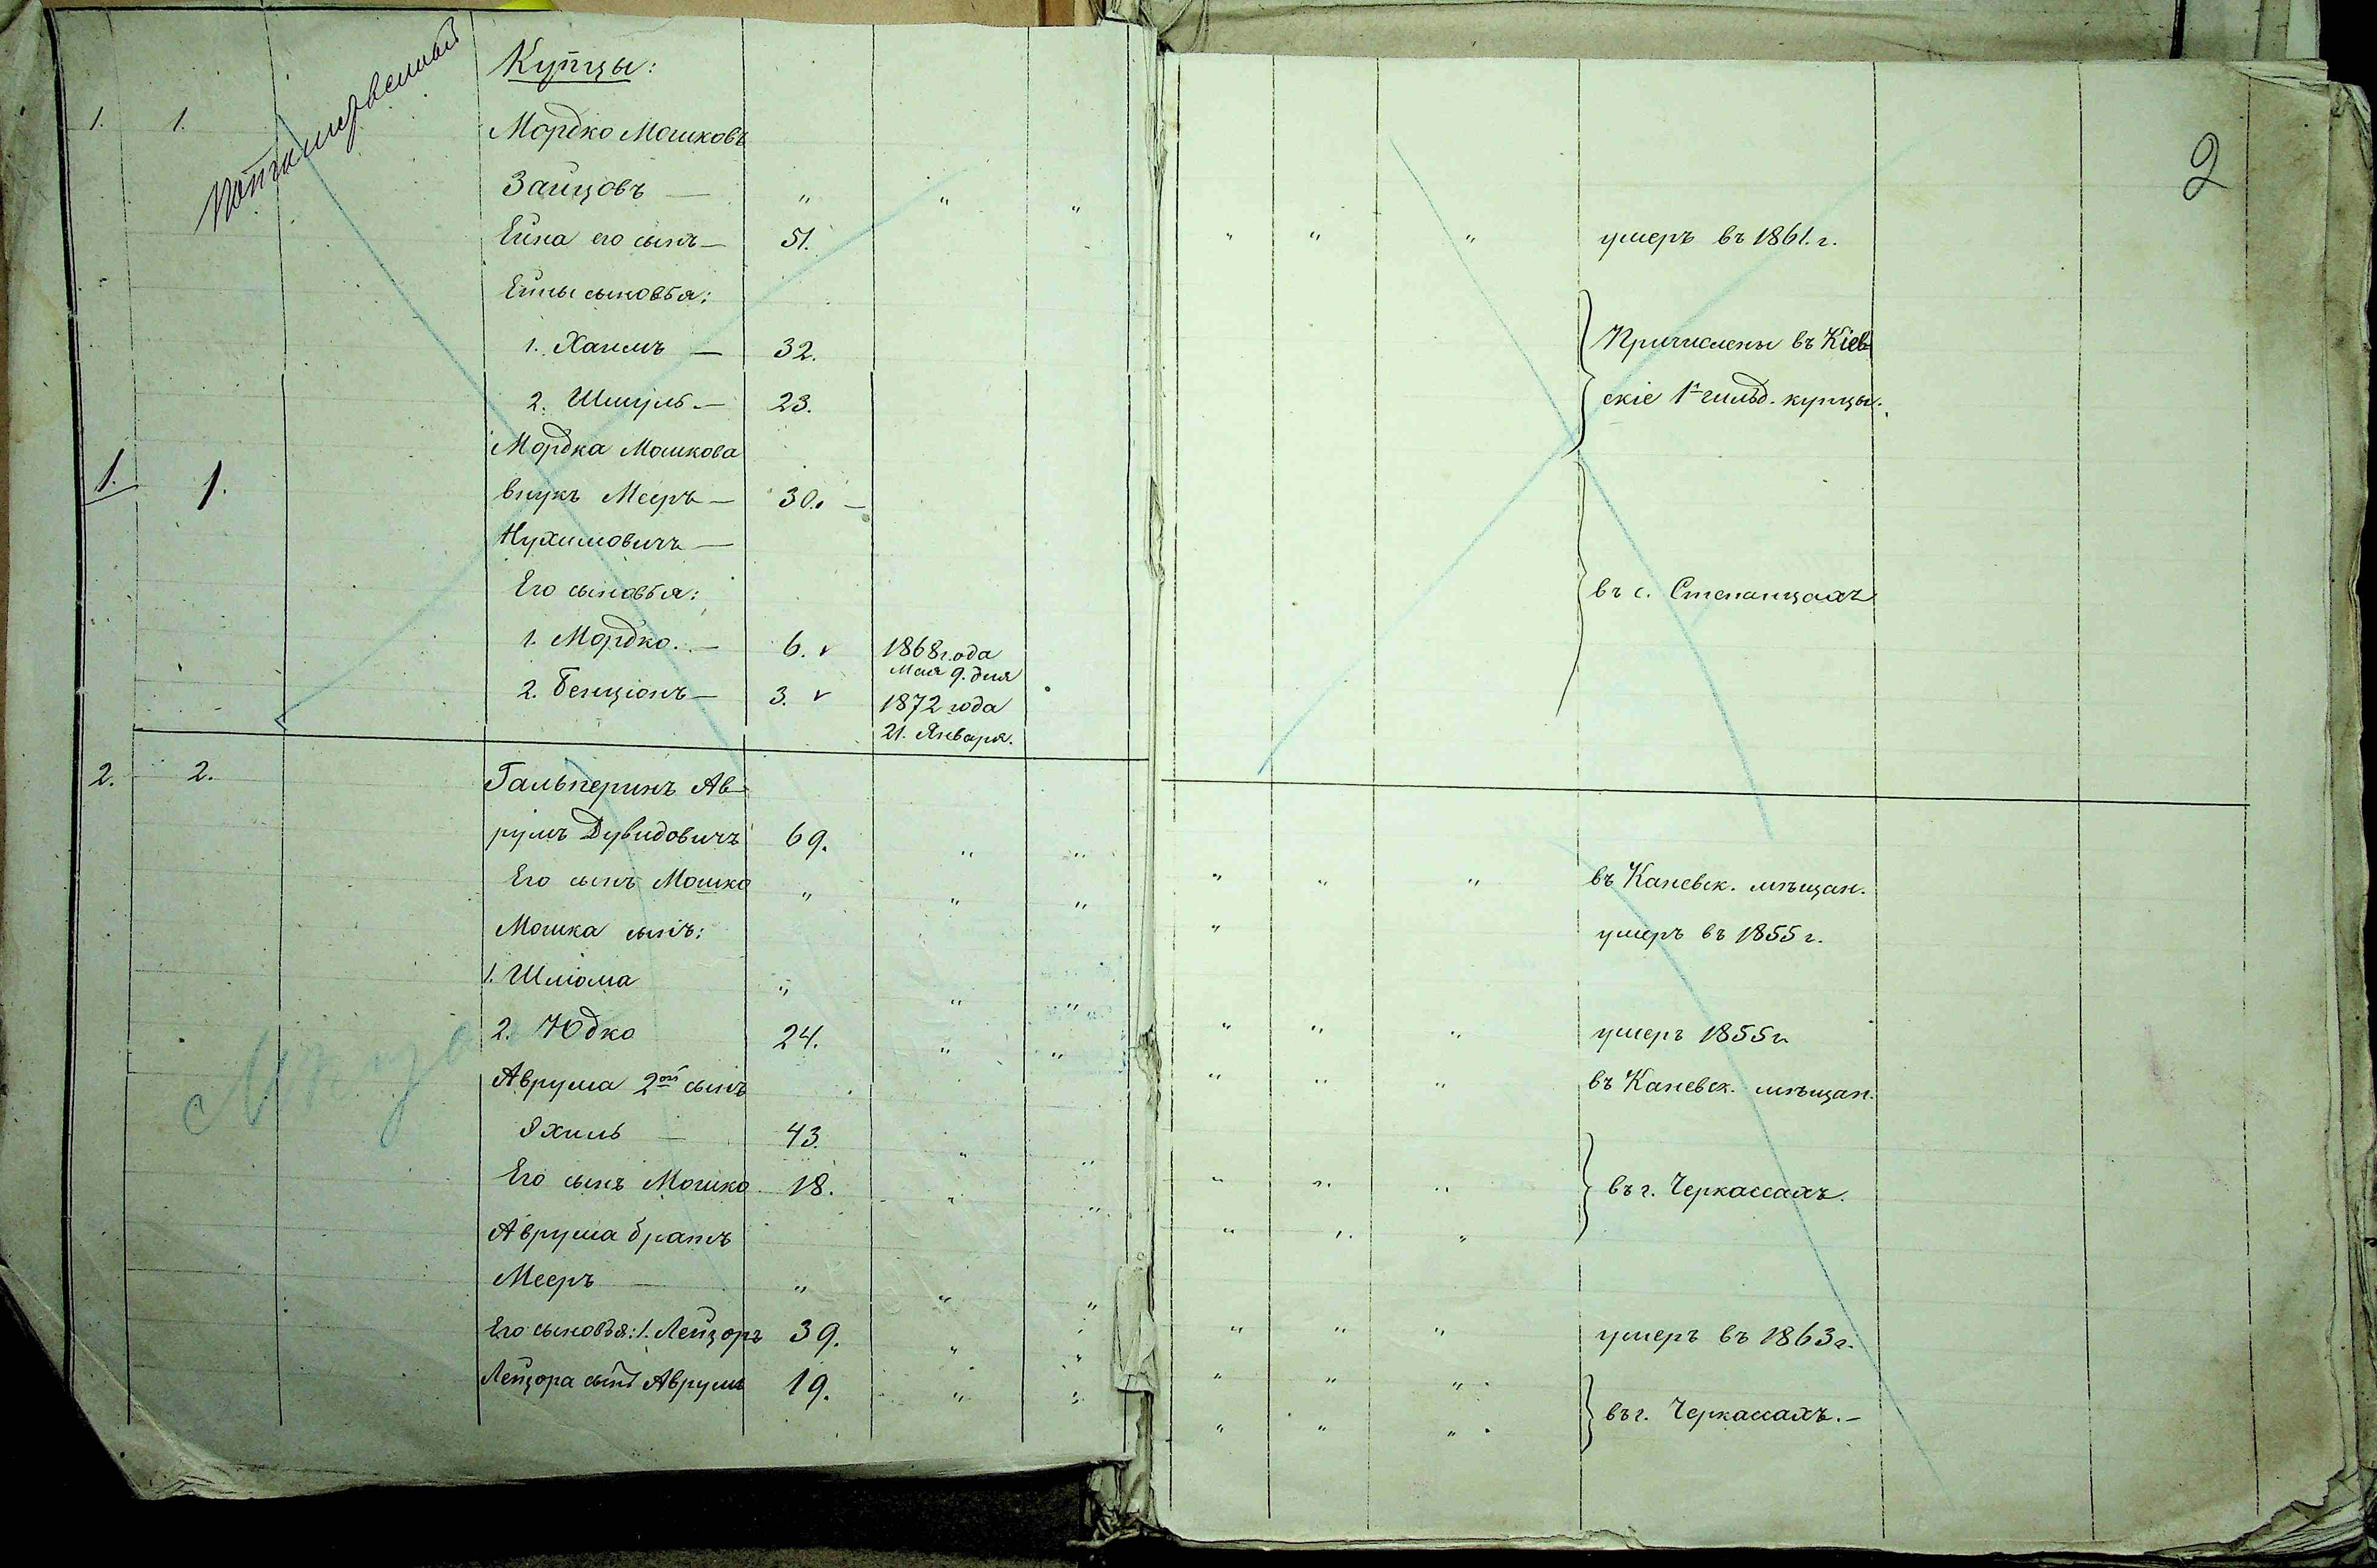 Купцы:
1. 1. Мордко Мошковъ
Зайцовъ — " " "
Ейна его сынъ — 51. " " " умеръ въ 1861. г.
Ейны сыновья:
1. Хаимъ — 32. Причислены въ Кіев-
2. Шмуль. — 23. скіе 1й гильд. купцы.
Мордка Мошкова
1. 1. внукъ Мееръ — 30. —
Нухимовичъ —
Его сыновья: въ с. Степанцахъ
1. Мордко. — 6. v 1868 года
Мая 9. дня
2. Бенціонъ — 3. v 1872 года
21. Января.
2. 2. Гальперинъ Ав-
румъ Дувидовичъ 69. " " " " " въ Каневск. мѣщан.
Его сынъ Мошко " " " " умеръ въ 1855 г.
Мошка сынъ:
1. Шлиома " " " " " " умеръ 1855 г.
2. Юдко 24. " " " " " въ Каневск. мѣщан.
Аврума 2ой сынъ
Эхиль — 43. " " " " "
Его сынъ Мошко 18. " " " " " въ г. Черкассахъ.
Аврума братъ
Мееръ — " " " " " " умеръ въ 1863 г.
Его сыновья: 1. Лейзоръ 39. " " " " "
Лейзора сынъ Аврумъ 19. " " " " " въ г. Черкассахъ. —
2